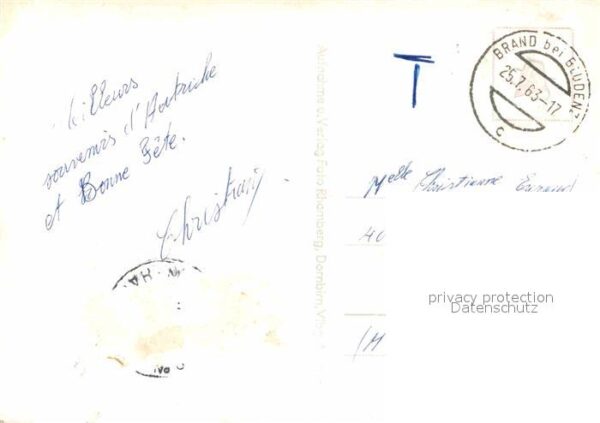 Meilleurs
souvenirs d'Autriche
et Bonne Fête.
Christian
Aufnahme u. Verlag Foto Rhomberg, Dornbirn,
T
BRAND bei BLUDENZ
25.7.63-17
c
Melle Christianne
40
privacy protection
Datenschutz
(M